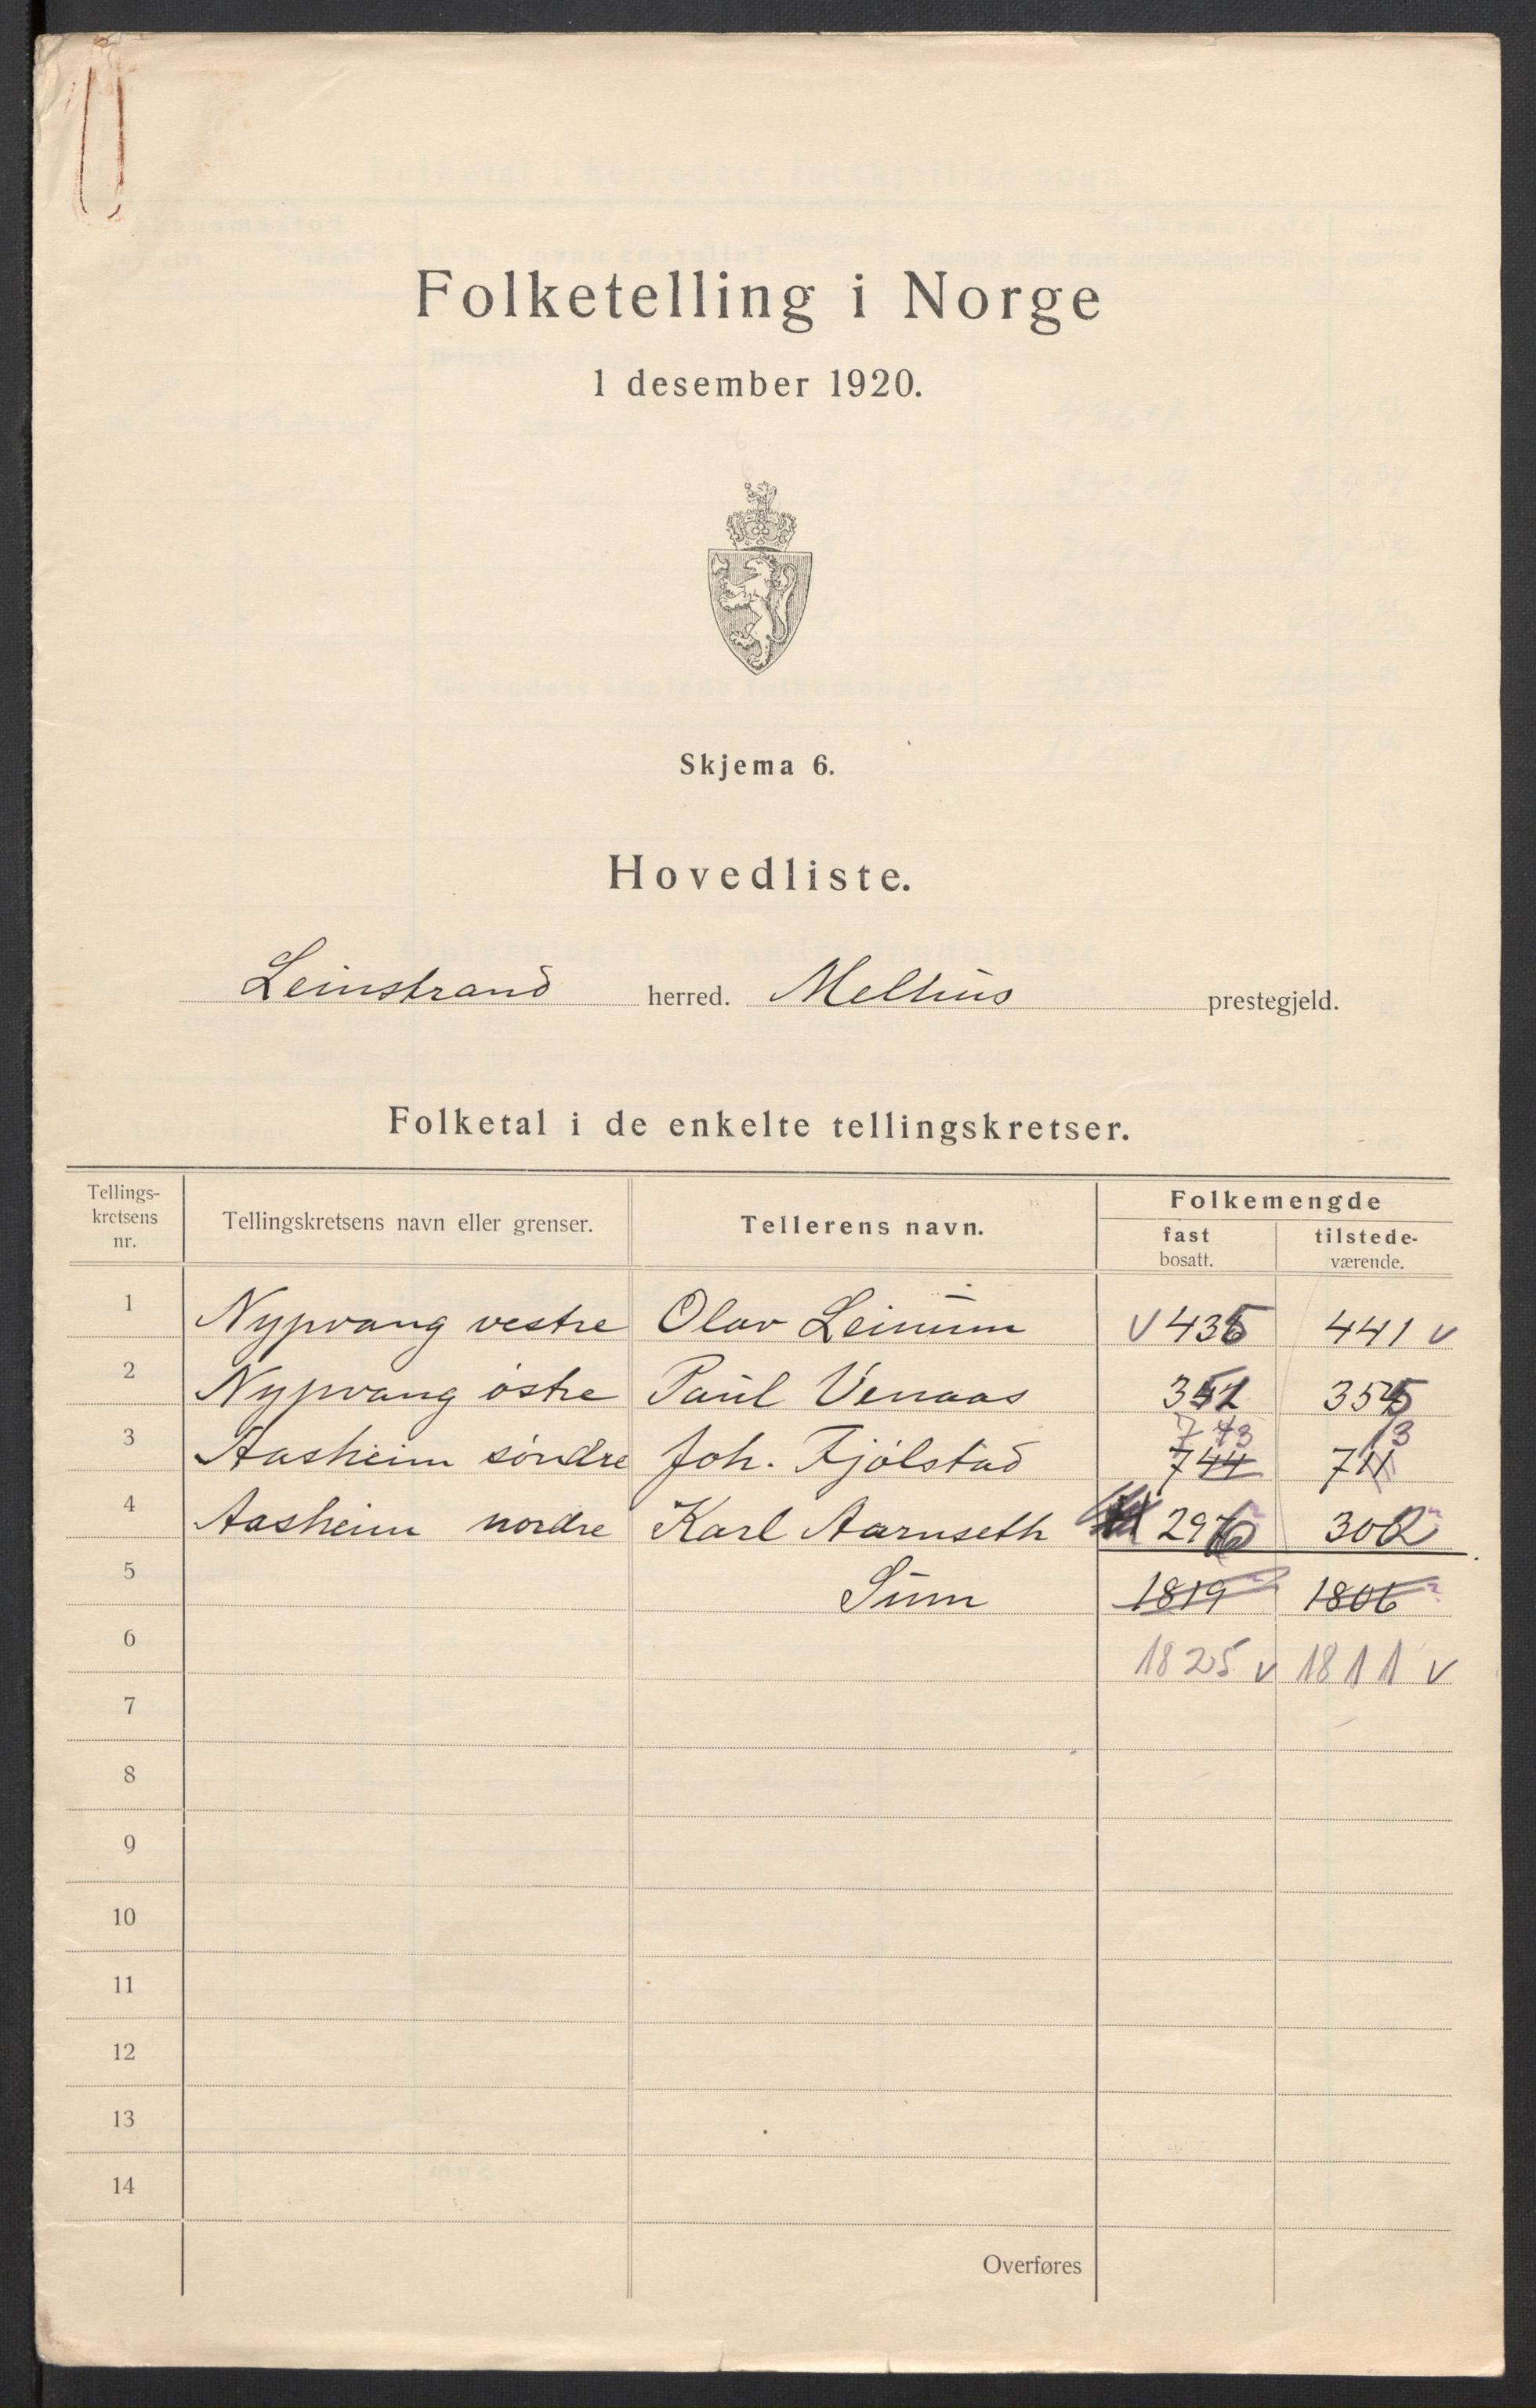 Folketelling i Norge
1 desember 1920.
Skjema 6.
Hovedliste.
Leinstrand herred. Melhus prestegjeld.
Folketal i de enkelte tellingskretser.
Tellings-
kretsens
nr.
Tellingskretsens navn eller grenser.
Tellerens navn.
Folkemengde
fast
bosatt.
tilstede-
værende.
1 Nypvang vestre Olav Leinum v 435 441 v
2 Nypvang østre Paul Venaas 351 355
773 13
3 Aasheim søndre Joh. Fjølstad 744 711
4 Aasheim nordre Karl Aarnseth 296 302
5 Sum 1819 1806
6 1825 v 1811 v
7
8
9
10
11
12
13
14
Overføres